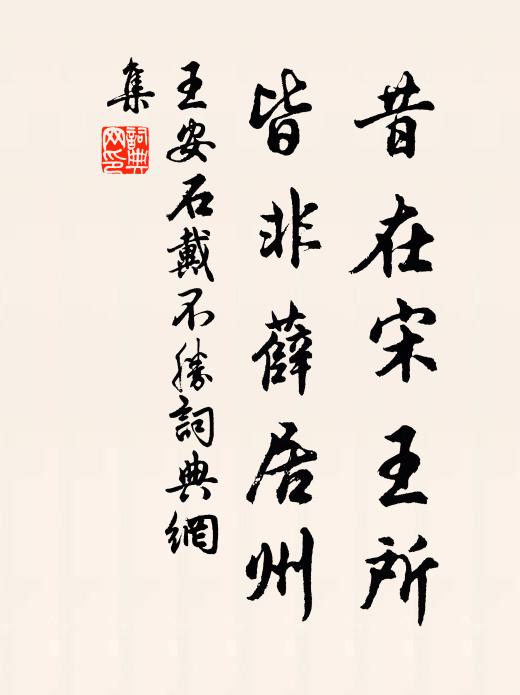 昔在宋王所
皆非薛居州
王安石戴不勝詞典網
集
詞典網印